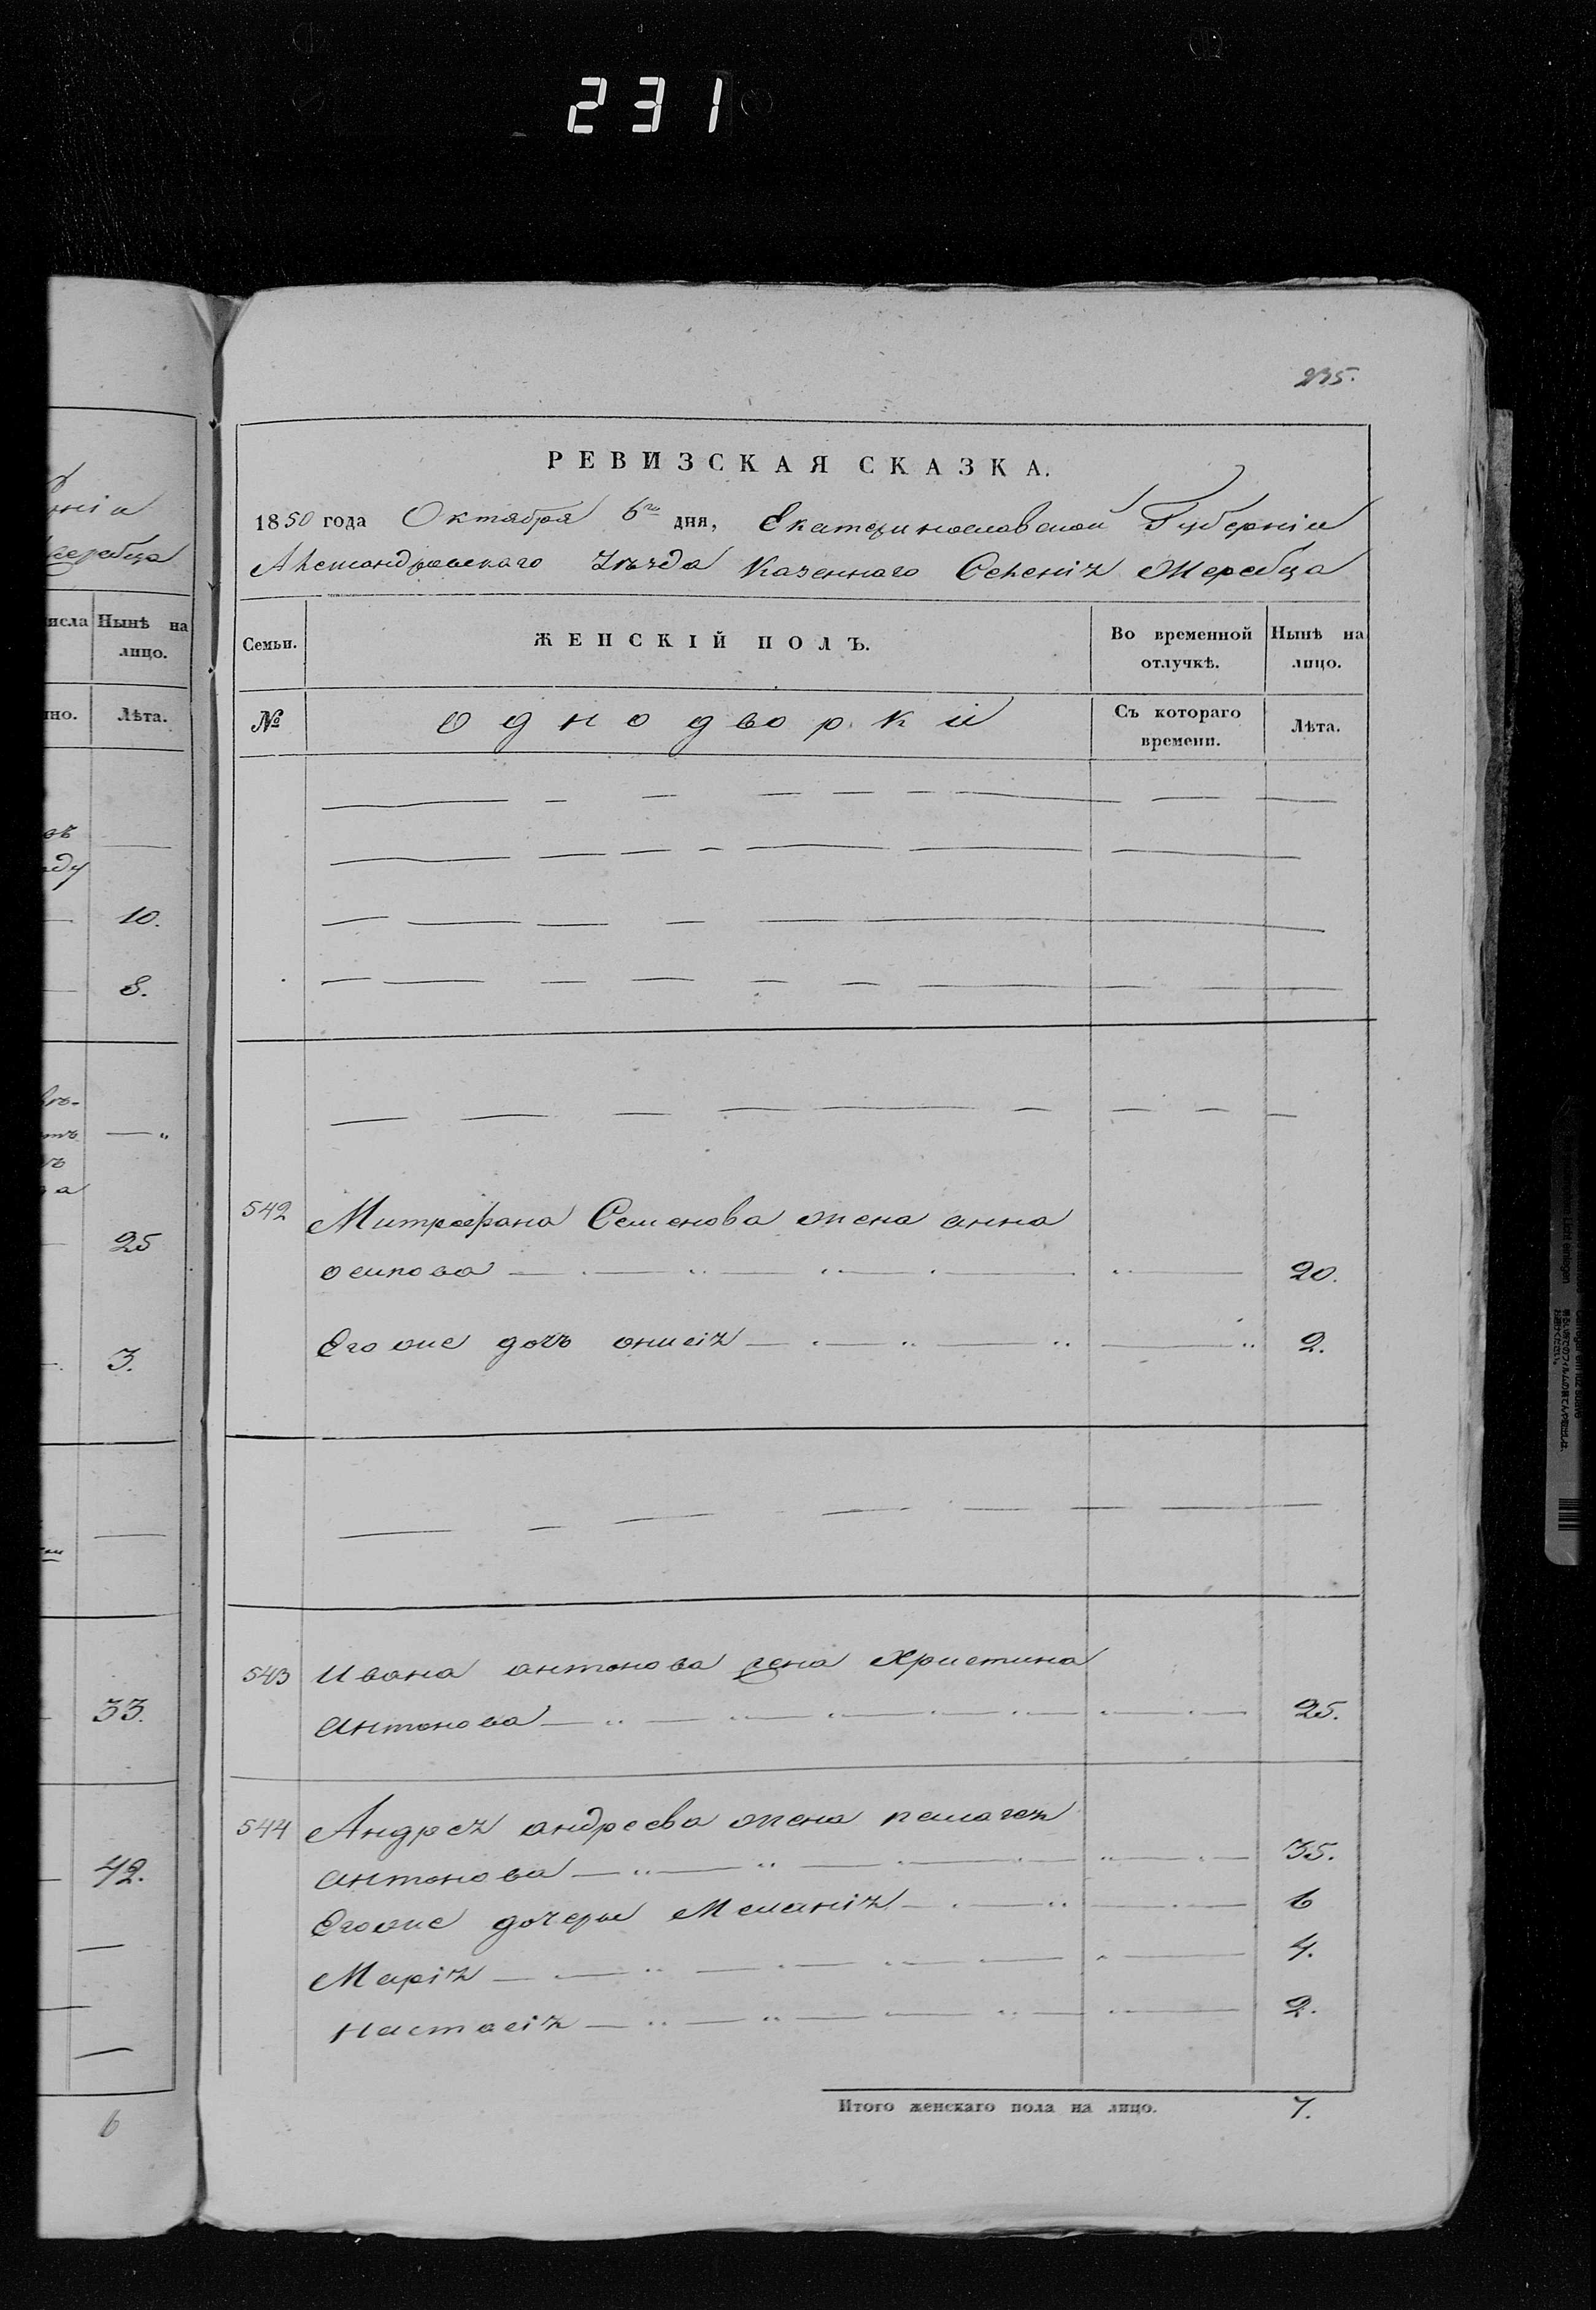 231
235.
РЕВИЗСКАЯ СКАЗКА.
1850 года Октября 6го дня, Екатеринославской Губерніи
Александровскаго Уѣзда Казеннаго Селенія Жеребца
Семьи.
ЖЕНСКІЙ ПОЛЪ.
Во временной отлучкѣ.
Нынѣ на лицо.
№
Однодворки
Съ котораго времени.
Лѣта.
542 Митрофана Семенова жена анна
осипова 20.
Его же дочь 2.
543 Ивана антонова жена Христина
антонова 25.
544 Андрея андреева жена пелагея
антонова 35.
Егоже дочери Меланія 6
Марія 4.
настасія 2.
Итого женскаго пола на лицо. 7.
ніи
жеребца
исла
Нынѣ на
лицо.
но.
Лѣта.
ду
10.
8.
25
3.
33.
42.
6